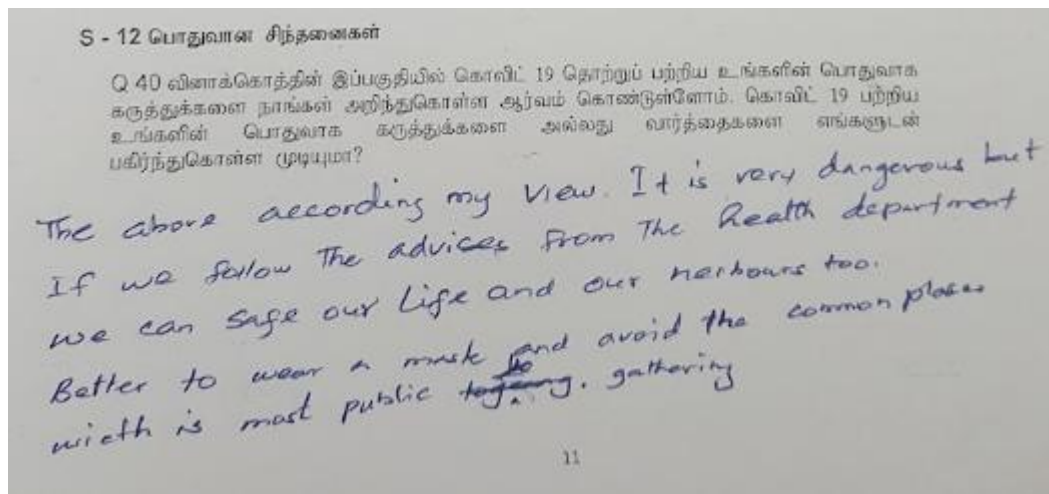 S - 12 பொதுவான சிந்தனைகள்
Q 40 வினாக்கொத்தின் இப்பகுதியில் கொவிட் 19 தொற்றுப் பற்றிய உங்களின் பொதுவாக
கருத்துக்களை நாங்கள் அறிந்துகொள்ள ஆர்வம் கொண்டுள்ளோம். கொவிட் 19 பற்றிய
உங்களின் பொதுவாக கருத்துக்களை அல்லது வார்த்தைகளை எங்களுடன்
பகிர்ந்துகொள்ள முடியுமா?
The above according my view. It is very dangerous but
If we follow The advices from The health department
we can safe our Life and our neibours too.
Better to wear a mask and avoid the common places
wicth is most public gathering
11